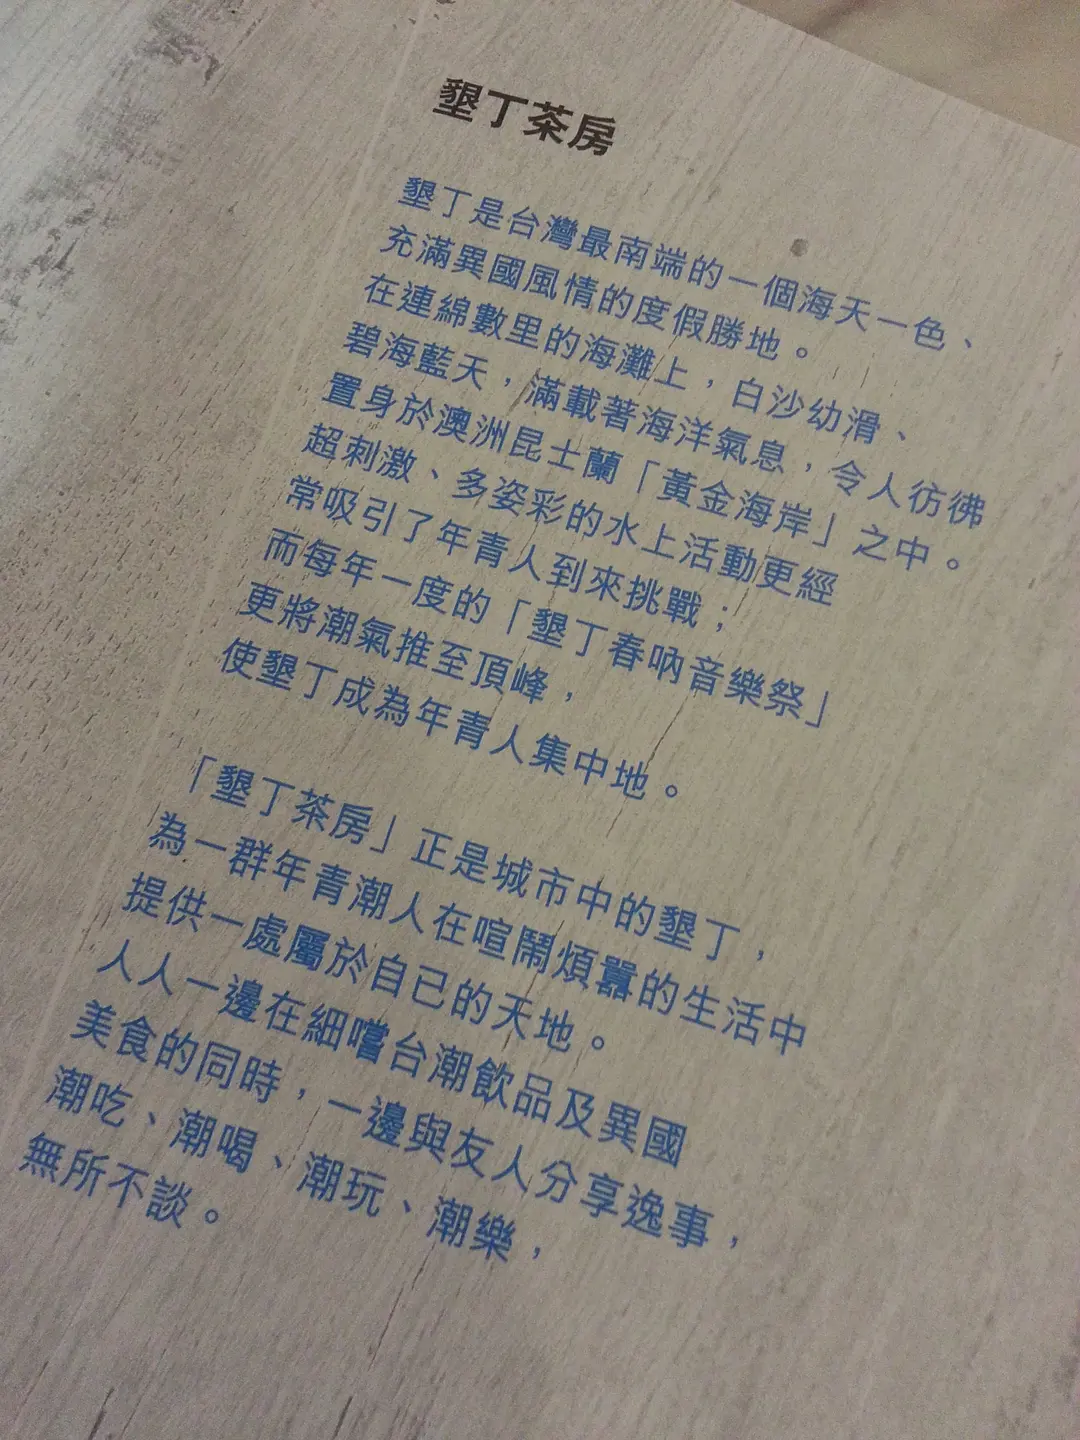 墾丁茶房
墾丁是台灣最南端的一個海天一色、
充滿異國風情的度假勝地。
在連綿數里的海灘上，白沙幼滑、
碧海藍天，滿載著海洋氣息，令人彷彿
置身於澳洲昆士蘭「黃金海岸」之中。
超刺激、多姿彩的水上活動更經
常吸引了年青人到來挑戰；
而每年一度的「墾丁春吶音樂祭」
更將潮氣推至頂峰，
使墾丁成為年青人集中地。
「墾丁茶房」正是城市中的墾丁，
為一群年青潮人在喧鬧煩囂的生活中
提供一處屬於自己的天地。
人人一邊在細嚐台潮飲品及異國
美食的同時，一邊與友人分享逸事，
潮吃、潮喝、潮玩、潮樂，
無所不談。